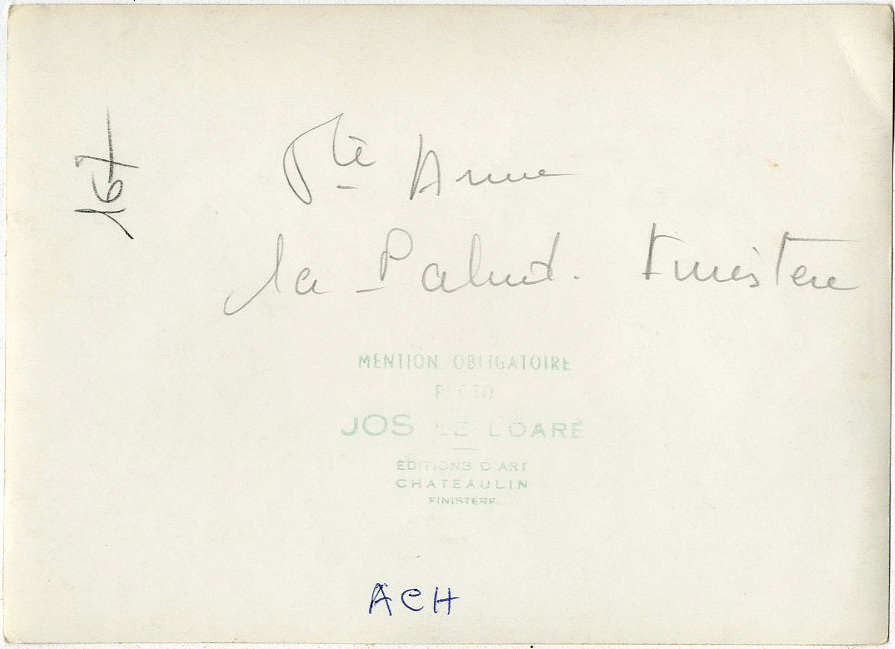 167
Ste Anne
la Palud. Finistere
MENTION OBLIGATOIRE
PHOTO
JOS LE DOARÉ
EDITIONS D'ART
CHATEAULIN
FINISTÈRE
ACH